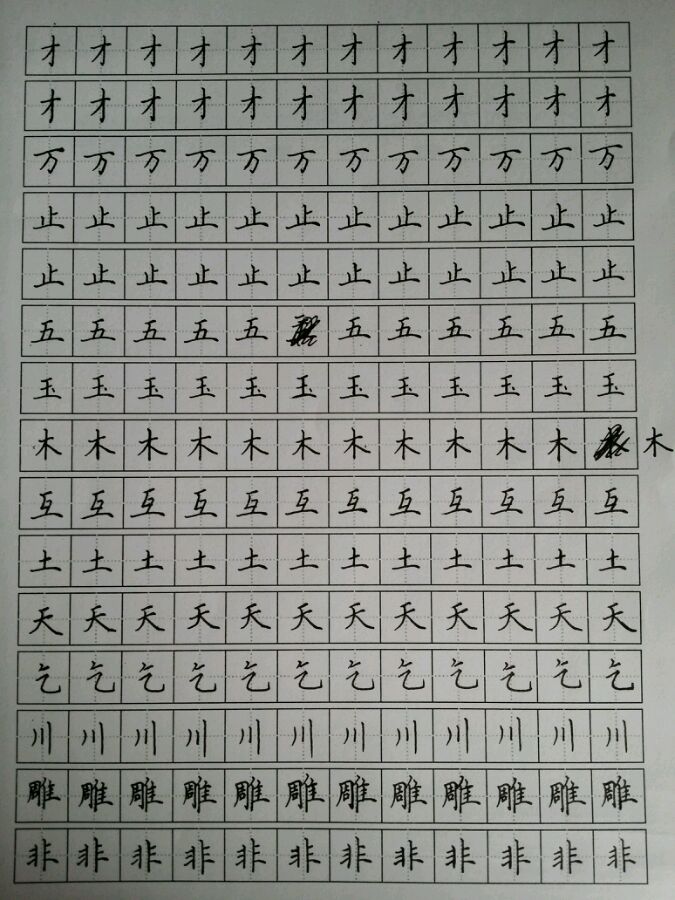 才才才才才才才才才才才才
才才才才才才才才才才才才
万万万万万万万万万万万万
止止止止止止止止止止止止
止止止止止止止止止止止止
五五五五五五五五五五五
玉玉玉玉玉玉玉玉玉玉玉玉
木木木木木木木木木木木木
互互互互互互互互互互互互
土土土土土土土土土土土土
天天天天天天天天天天天天
乞乞乞乞乞乞乞乞乞乞乞乞
川川川川川川川川川川川川
雕雕雕雕雕雕雕雕雕雕雕雕
非非非非非非非非非非非非